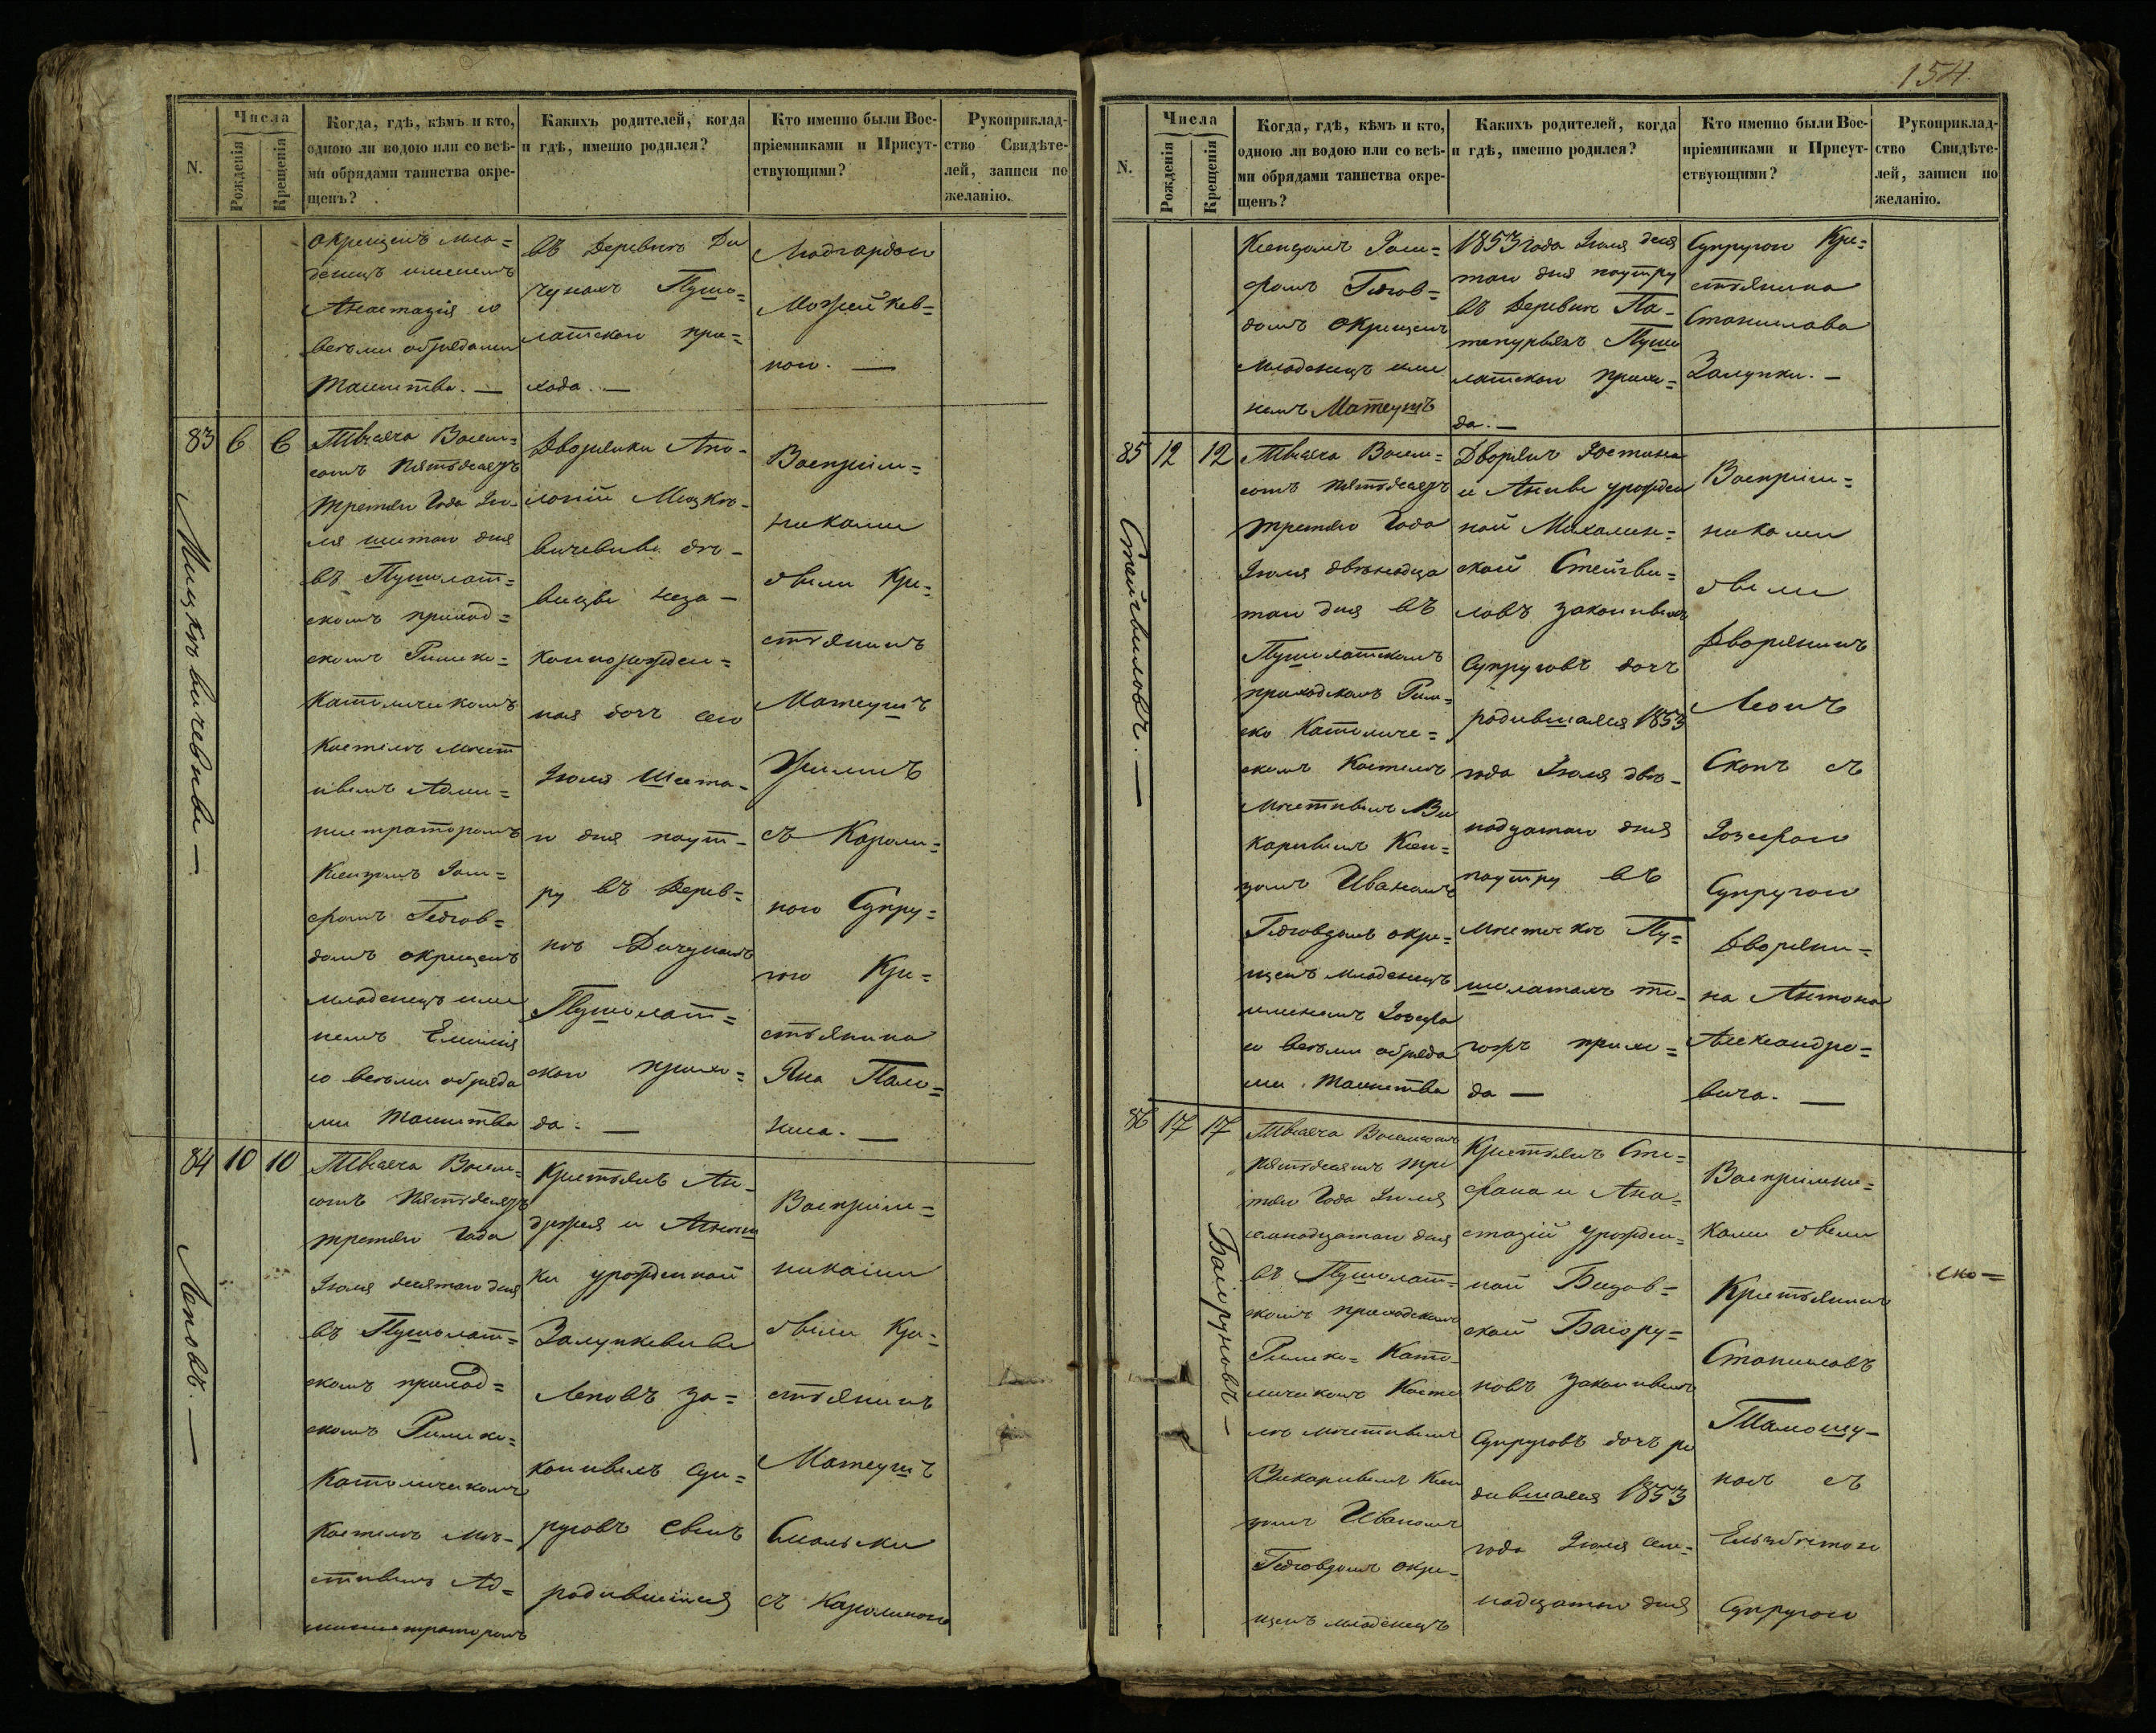 154
N.
Числа
Рожденія
Крещенія
Когда, гдѣ, кѣмъ и кто,
одною ли водою или со всѣ-
ми обрядами таинства окре-
щенъ?
Какихъ родителей, когда
и гдѣ, именно родился?
Кто именно были Вос-
пріемниками и Присут-
ствующими?
Рукоприклад-
ство Свидѣте-
лей, записи по
желанію.
окрещенъ мла=
денецъ именемъ
Анастазія со
всѣми обрядами
таинства. —
въ деревнѣ Ди
чунахъ Пушо=
латскаго при=
хода. —
Можейкев=
ною. —
83
6
6
Мицкѣвичевны —
Тысяча Восем=
сотъ пятьдесятъ
третяго Года Iю-
ля шестаго дня
въ Пушолат=
скомъ приход=
скомъ Римско=
Католическомъ
Костелѣ мѣст
нымъ Адми=
нистраторомъ
Ксендзомъ Iози=
фомъ Гедгов=
домъ окрещенъ
младенецъ име
немъ Емилія
со всѣми обряда
ми таинства
Дворянки Апо-
лоніи Мицкѣ-
вичевны дѣ-
вицы неза-
коннорожден=
ная дочь сего
Iюля шеста-
го дня поут-
ру въ дерев=
нѣ Дичунахъ
Пушолат=
скаго прихо=
да. —
Воспріем=
никами
были Кре=
стьянинъ
Матеушъ
съ Кароли=
ною Супру=
гою Кре=
стьянина
Яна Пало=
ниса. —
84
10
10
Леповъ. —
Тысяча Восем=
сотъ пятьдесятъ
третяго Года
Iюля десятаго дня
въ Пушолат=
скомъ приход=
скомъ Римско=
Католическомъ
Костелѣ мѣ-
стнымъ Ад=
министраторомъ
Крестьянъ Ан-
држея и Агнеш
ки урожденной
Залункевны
Леповъ за=
конныхъ Суп=
руговъ сынъ
родившійся
Воспріем=
никами
были Кре=
стьянинъ
Матеушъ
съ Каролиною
N.
Числа
Рожденія
Крещенія
Когда, гдѣ, кѣмъ и кто,
одною ли водою или со всѣ-
ми обрядами таинства окре-
щенъ?
Какихъ родителей, когда
и гдѣ, именно родился?
Кто именно были Вос-
пріемниками и Присут-
ствующими?
Рукоприклад-
ство Свидѣте-
лей, записи по
желанію.
Ксендзомъ Iози=
фомъ Гедгов=
домъ окрещенъ
младенецъ име
немъ Матеушъ
1853 года Iюля деся
таго дня поутру
въ деревнѣ Па-
тепурьяхъ Пушо
латскаго прихо=
да. —
Супругою Кре=
стьянина
Станислава
Залунки. —
85
12
12
Стейгвиловъ. —
Тысяча Восем=
сотъ пятьдесятъ
третяго Года
Iюля двѣнадца
таго дня въ
Пушолатскомъ
приходскомъ Рим=
ско Католиче=
скомъ Костелѣ
мѣстнымъ Ви
карнымъ Ксен=
дзомъ Иваномъ
Гедговдомъ окре=
щенъ младенецъ
именемъ Iозефа
со всѣми обряда
ми таинства
Дворянъ Юстина
и Анны урожден
ной Михалин=
ской Стейгви=
ловъ законныхъ
Супруговъ дочь
родившаяся 1853
года Iюля двѣ-
надцатаго дня
поутру въ
мѣстечкѣ Пу=
шолатахъ то-
гожъ прихо=
да —
Воспріем=
никами
были
Дворянинъ
Леонъ
Скопъ съ
Iозефою
Супругою
Дворяни=
на Антона
Александро=
вича. —
86
17
17
Баіоруновъ —
Тысяча Восемсотъ
пятьдесятъ тре
тяго Года Iюля
семнадцатаго дня
въ Пушолат=
скомъ приходскомъ
Римско= Като-
лическомъ Косте
лѣ мѣстнымъ
Викарнымъ Ксен
дзомъ Иваномъ
Гедговдомъ окре-
щенъ младенецъ
Крестьянъ Сте=
фана и Ана-
стазіи урожден=
ной
ской Баіору=
новъ законныхъ
Супруговъ дочь ро
дившаяся 1853
года Iюля сем=
надцатаго дня
Воспріемни=
ками были
Крестьянинъ
Станиславъ
Тамошу-
насъ съ
Ельжбѣтою
Супругою
ско=